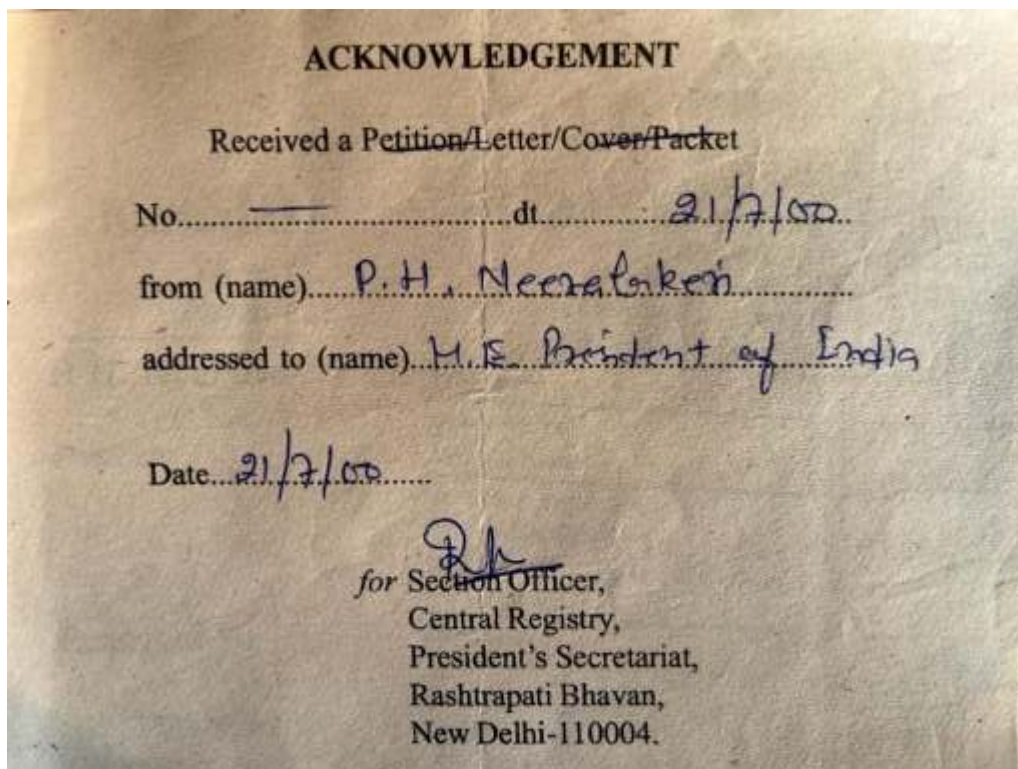 ACKNOWLEDGEMENT
Received a Petition/Letter/Cover/Packet
No.......—.......dt.......21/7/00
from (name).....P.H. Neeralakeri
addressed to (name)...H.E. President of India
Date...21/7/00......
for Section Officer,
Central Registry,
President's Secretariat,
Rashtrapati Bhavan,
New Delhi-110004.